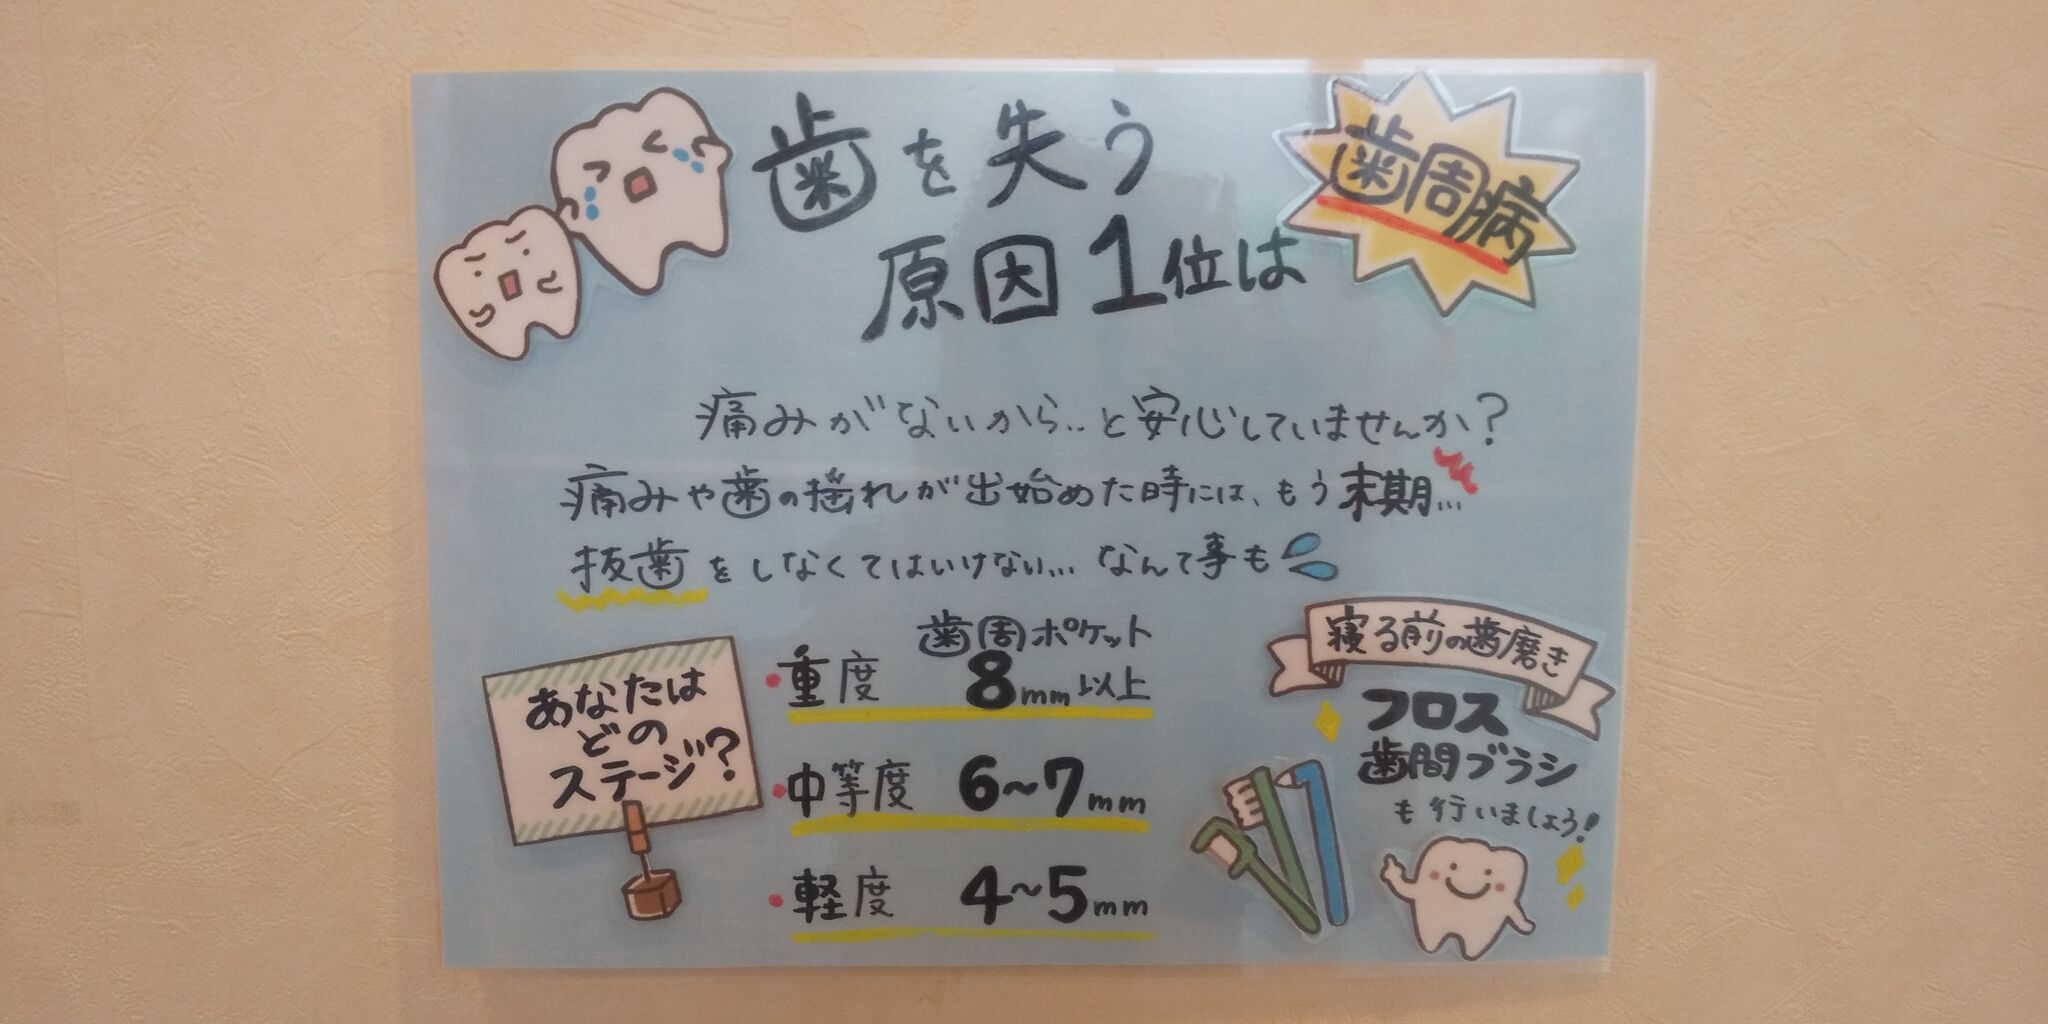 歯を失う
原因1位は
歯周病
痛みがないから‥と安心していませんか?
痛みや歯の揺れが出始めた時には、もう末期…
抜歯をしなくてはいけない…なんて事も
あなたは
どの
ステージ?
歯周ポケット
・重度 8mm以上
・中等度 6~7mm
・軽度 4~5mm
寝る前の歯磨き
フロス
歯間ブラシ
も行いましょう!